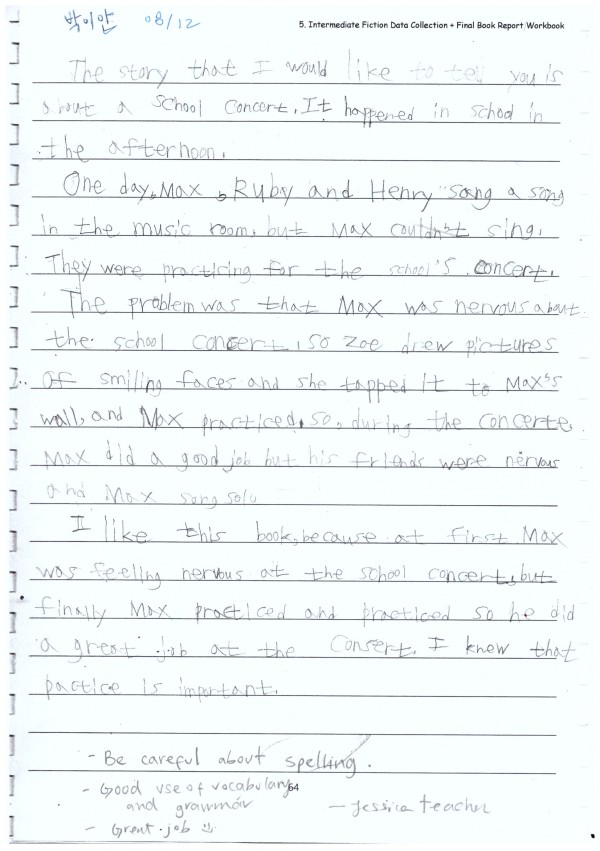 박이안 08/12
5. Intermediate Fiction Data Collection + Final Book Report Workbook
The story that I would like to tell you is
about a school concert. It happened in school in
the afternoon.
One day, Max, Ruby and Henry sang a song
in the music room, but Max couldn't sing.
They were practicing for the school's concert.
The problem was that Max was nervous about
the school concert, so Zoe drew pictures
of smiling faces and she tapped it to Max's
wall, and Max practiced, so, during the concerte,
Max did a good job but his friends were nervous
and Max sang solo
I like this book, because at first Max
was feeling nervous at the school concert, but
finally Max practiced and practiced so he did
a great job at the consert. I knew that
pactice is important.
- Be careful about spelling.
- Good use of vocabulary
64
and grammar
- Jessica teacher
- Great job